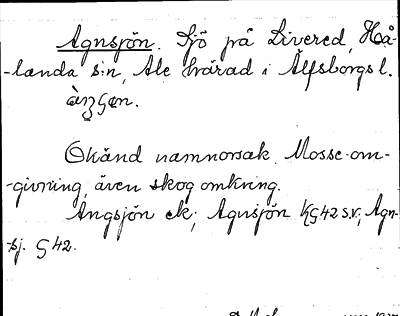 Agnsjön. Sjö på Livered, Hå-
-landa s:n, Ale härad i Älfsborgs l.
Okänd namnorsak. Mosse om-
-givning, även skog omkring.
Ängsjön ek; Agnsjön KG42 s.v.; Agn-
-sj. G42.